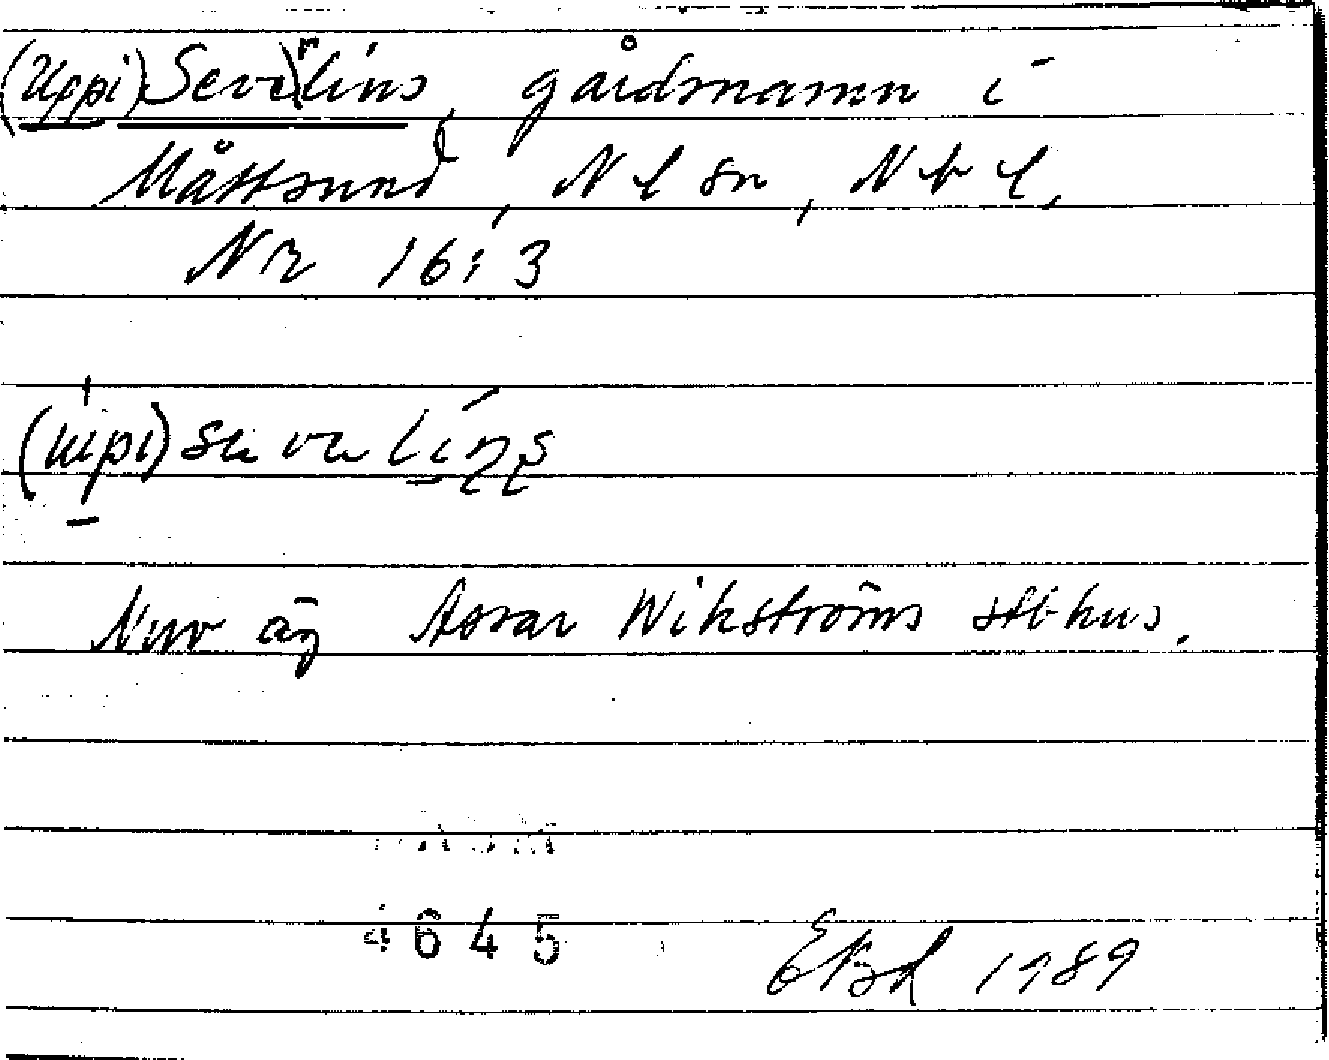 (Uppi) Severlins, gårdsnamn i
Måttsund, Nl sn, Nbl,
Nr 16:3
(upi) seva líns
Nuv äg Assar Wikströms stbhus.
4645
EBd 1989